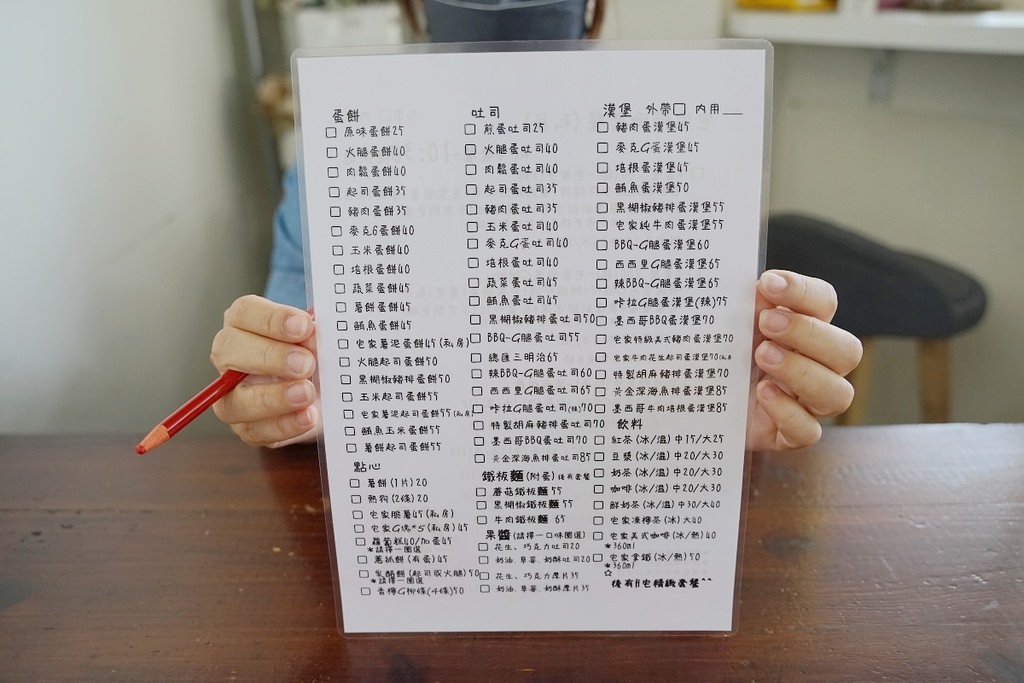 蛋餅
原味蛋餅25
火腿蛋餅40
肉鬆蛋餅40
起司蛋餅35
豬肉蛋餅35
麥克G蛋餅40
玉米蛋餅40
培根蛋餅40
蔬菜蛋餅45
薯餅蛋餅45
鮪魚蛋餅45
宅家薯泥蛋餅45(私房)
火腿起司蛋餅50
黑楜椒豬排蛋餅50
玉米起司蛋餅55
宅家薯泥起司蛋餅55(私房)
鮪魚玉米蛋餅55
薯餅起司蛋餅55
點心
薯餅(1片)20
熱狗(2條)20
宅家脆薯45(私房)
宅家G塊*5(私房)45
蘿蔔糕40/加蛋45
*請擇一圈選
蔥抓餅(有蛋)45
乳酪餅(起司或火腿)50
*請擇一圈選
香檸G柳條(4條)50
吐司
煎蛋吐司25
火腿蛋吐司40
肉鬆蛋吐司40
起司蛋吐司35
豬肉蛋吐司35
玉米蛋吐司40
麥克G蛋吐司40
培根蛋吐司40
蔬菜蛋吐司45
鮪魚蛋吐司45
黑楜椒豬排蛋吐司50
BBQ-G腿蛋吐司55
總匯三明治65
辣BBQ-G腿蛋吐司60
西西里G腿蛋吐司65
咔拉G腿蛋吐司(辣)70
特製胡麻豬排蛋吐司70
墨西哥BBQ蛋吐司70
黃金深海魚排蛋吐司85
鐵板麵(附蛋)後有套餐
蘑菇鐵板麵55
黑楜椒鐵板麵55
牛肉鐵板麵 65
果醬(請擇一口味圈選)
花生、巧克力吐司20
奶油、草莓、奶酥吐司20
花生、巧克力厚片35
奶油、草莓、奶酥厚片35
漢堡 外帶□ 內用___
豬肉蛋漢堡45
麥克G蛋漢堡45
培根蛋漢堡45
鮪魚蛋漢堡50
黑楜椒豬排蛋漢堡55
宅家純牛肉蛋漢堡55
BBQ-G腿蛋漢堡60
西西里G腿蛋漢堡65
辣BBQ-G腿蛋漢堡65
咔拉G腿蛋漢堡(辣)75
墨西哥BBQ蛋漢堡70
宅家特級美式豬肉蛋漢堡70
宅家牛肉花生起司蛋漢堡70(私房
特製胡麻豬排蛋漢堡70
黃金深海魚排蛋漢堡85
墨西哥牛肉培根蛋漢堡85
飲料
紅茶(冰/溫)中15/大25
豆漿(冰/溫)中20/大30
奶茶(冰/溫)中20/大30
咖啡(冰/溫)中20/大30
鮮奶茶(冰/溫)中30/大40
宅家凍檸茶(冰)大40
宅家美式咖啡(冰/熱)40
*360ml
宅家拿鐵(冰/熱)50
*360ml
☆
後有H宅精緻套餐^^